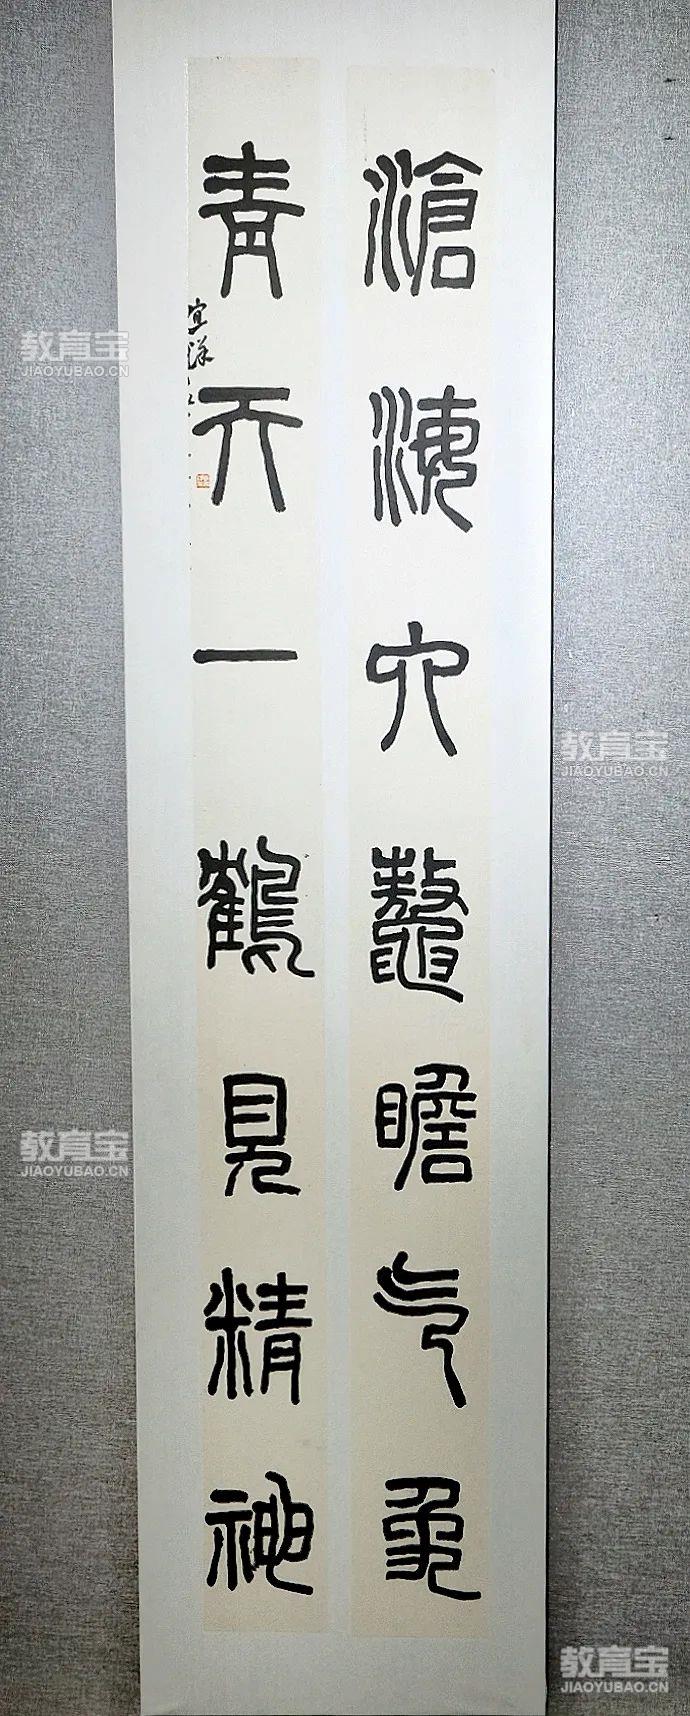 滄海六鼇瞻气象
青天一鶴見精神
教育宝
JIAOYUBAO.CN
教育宝
JIAOYUBAO.CN
教育宝
JIAOYUBAO.CN
教育宝
JIAOYUBAO.CN